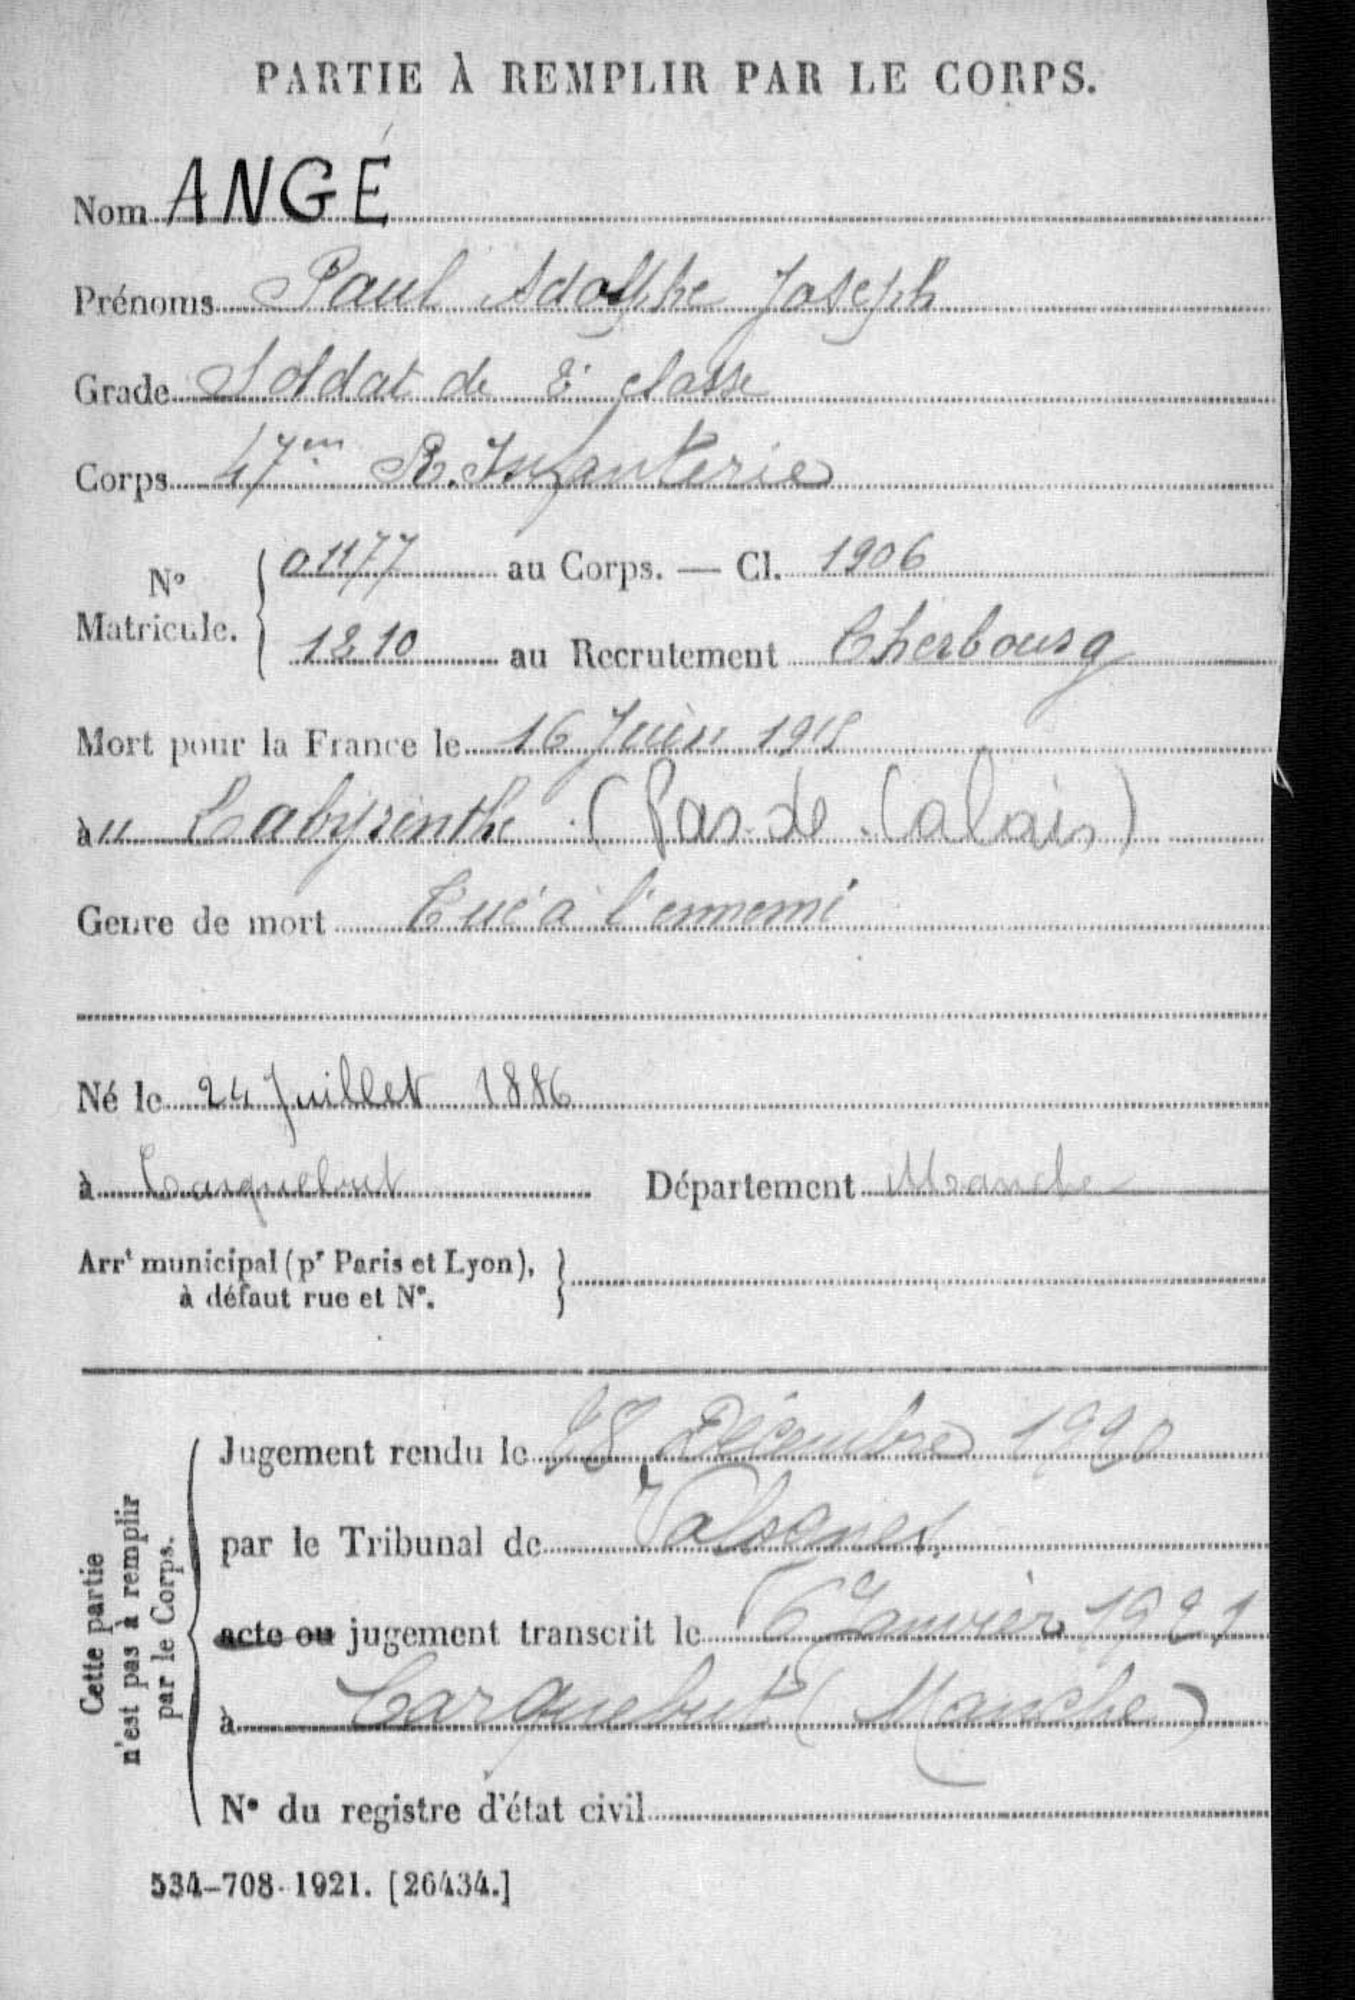 PARTIE À REMPLIR PAR LE CORPS.
Nom ANGÉ
Prénoms Paul Adolphe Joseph
Grade Soldat de 2e classe
Corps 47em R. Infanterie
No Matricule. 01177 au Corps. — Cl. 1906
1210 au Recrutement Cherbourg
Mort pour la France le 16 Juin 1915
au Labyrinthe (Pas-de-Calais)
Genre de mort Tué à l'ennemi
Né le 24 Juillet 1886
à Carquebut Département Manche
Arrt municipal (pr Paris et Lyon),
à défaut rue et No.
Cette partie
n'est pas à remplir
par le Corps.
Jugement rendu le 28 Décembre 1920
par le Tribunal de Valognes.
acte ou jugement transcrit le 6 Janvier 1921
à Carquebut (Manche)
No du registre d'état civil
534-708-1921. [26434.]